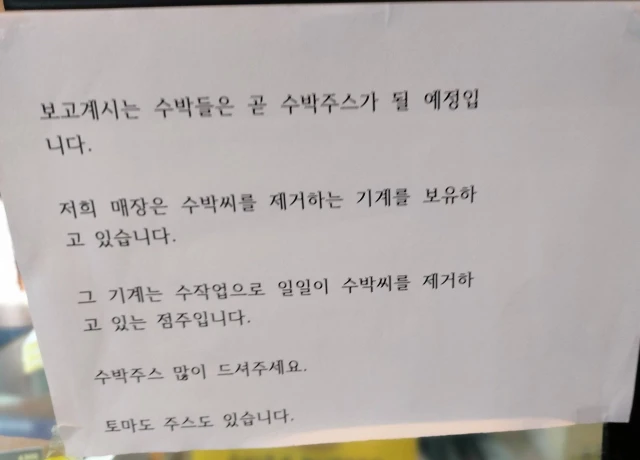 보고계시는 수박들은 곧 수박주스가 될 예정입
니다.
저희 매장은 수박씨를 제거하는 기계를 보유하
고 있습니다.
그 기계는 수작업으로 일일이 수박씨를 제거하
고 있는 점주입니다.
수박주스 많이 드셔주세요.
토마도 주스도 있습니다.